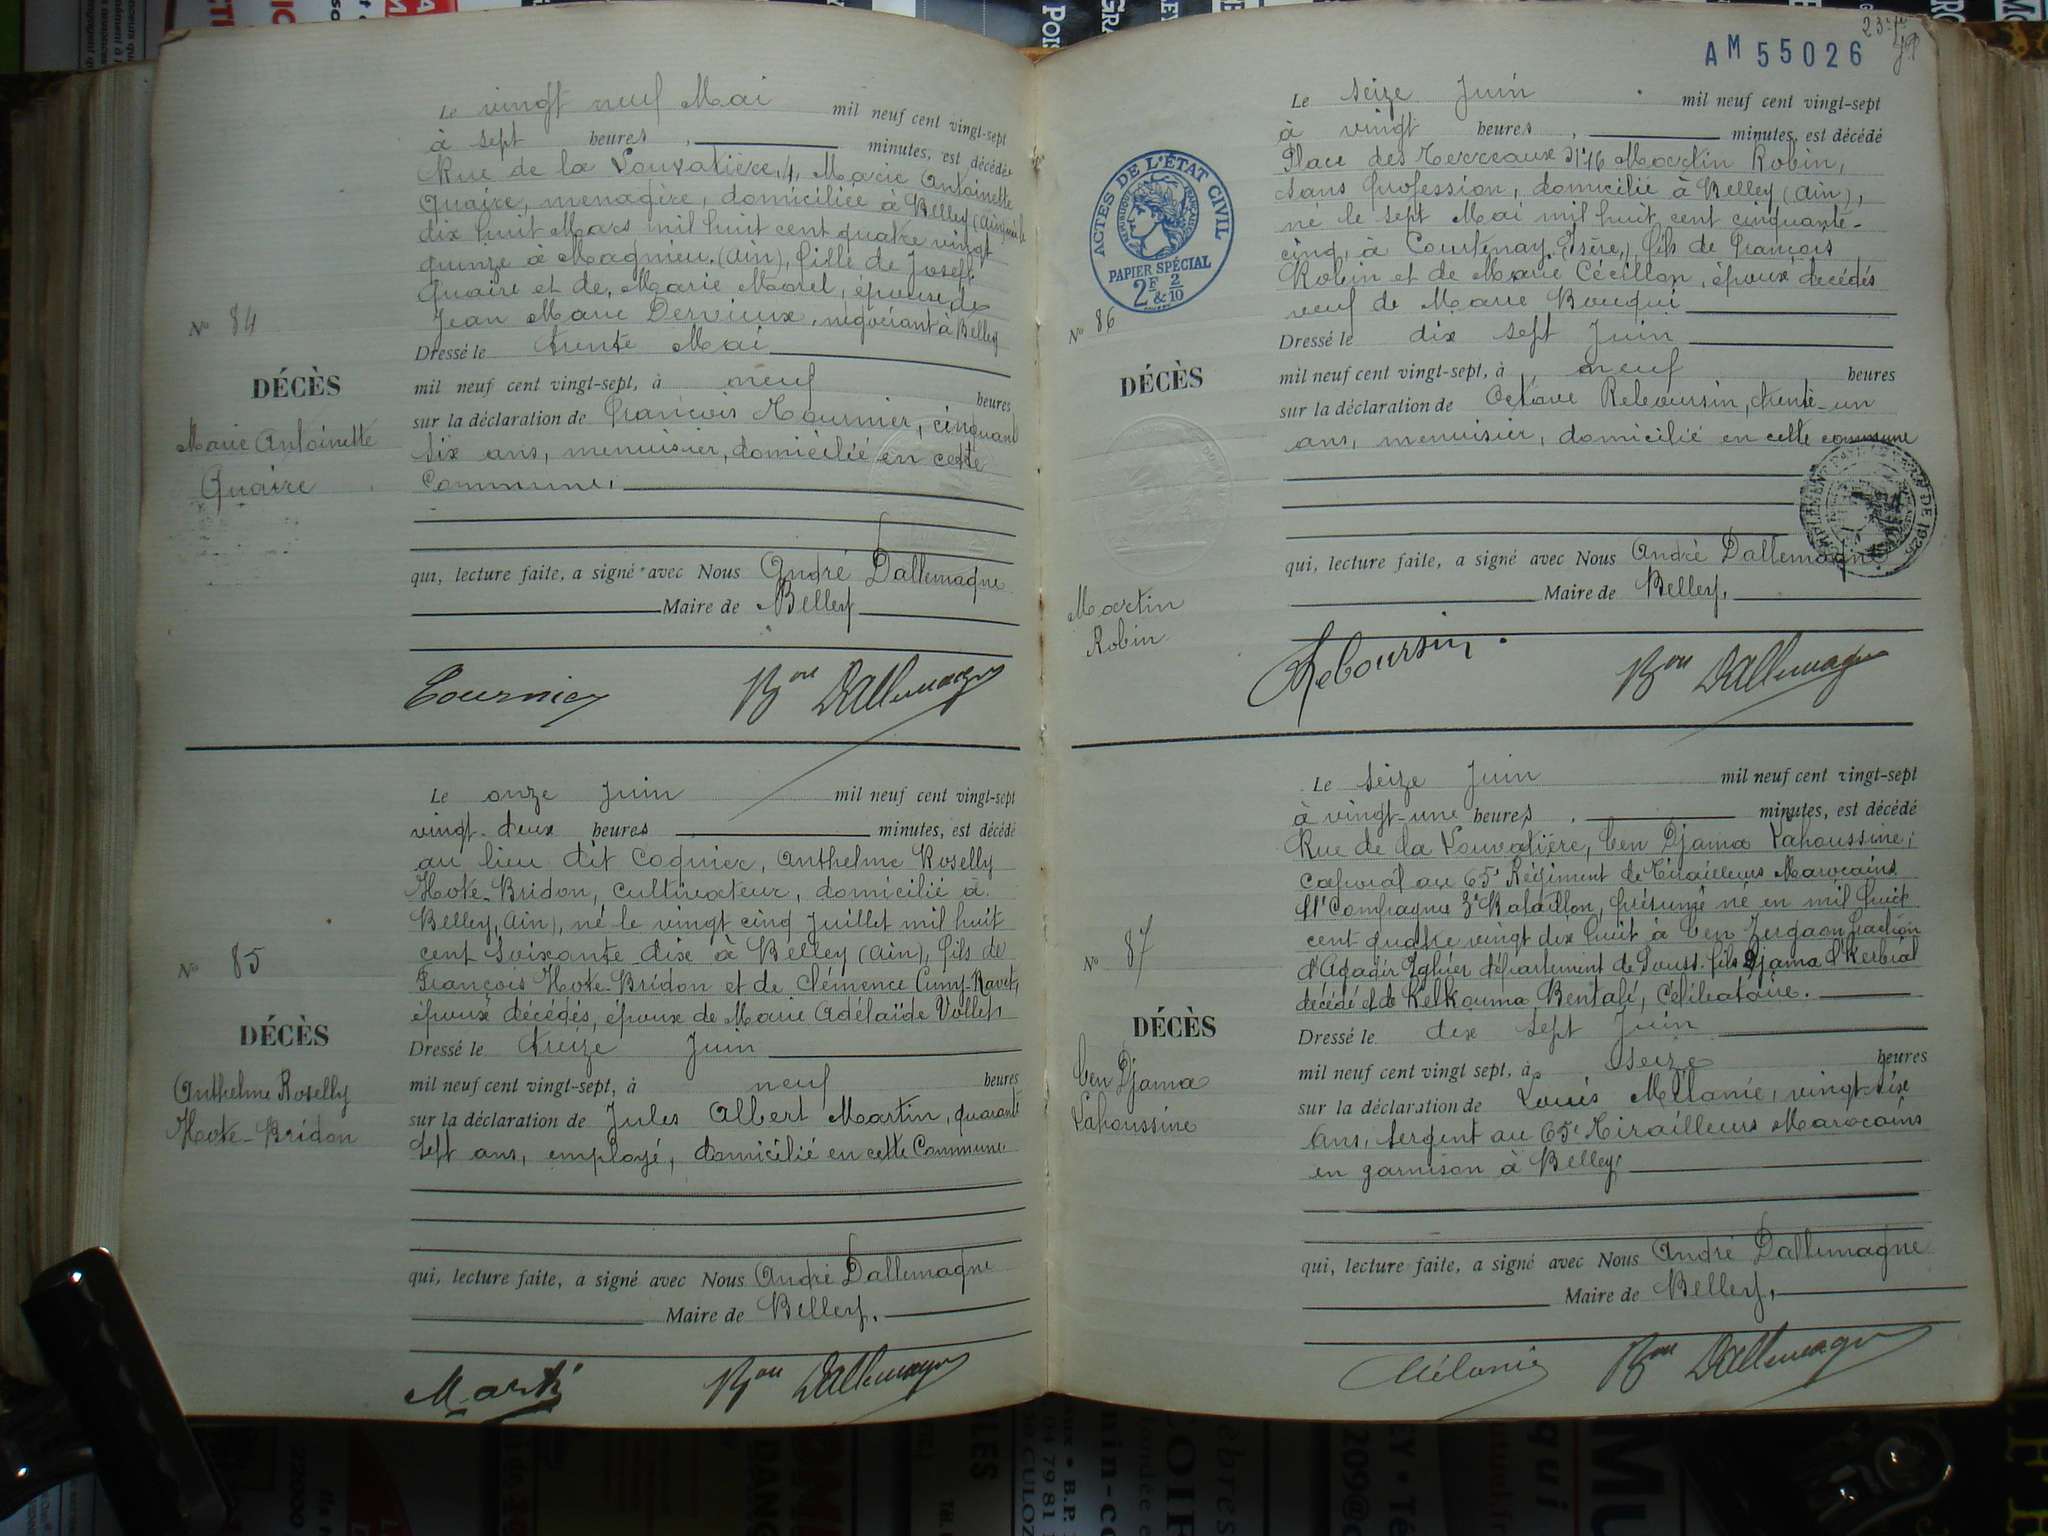 Le vingt neuf Mai mil neuf cent vingt-sept
à sept heures, minutes, est décédée
Rue de la Louvatière, 4, Marie Antoinette
Quaire, menagère, domiciliée à Belley (Ain) née le
dix huit Mars mil huit cent quatre vingt
quinze à Magnieu (Ain), fille de Joseph
Quaire et de Marie Morel, épouse de
Jean Marie Dervieux, négociant à Belley
Dressé le trente Mai
mil neuf cent vingt-sept, à neuf heures
sur la déclaration de François Tournier, cinquante
six ans, menuisier, domicilié en cette
Commune,
qui, lecture faite, a signé avec Nous André Dallemagne
Maire de Belley
Tournier Bon Dallemagne
No 84
DÉCÈS
Marie Antoinette
Quaire
Le onze Juin mil neuf cent vingt-sept
vingt-deux heures minutes, est décédé
au lieu dit Coquier, Anthelme Roselly
Hote-Bridon, cultivateur, domicilié à
Belley, (Ain), né le vingt cinq Juillet mil huit
cent soixante dix à Belley (Ain), fils de
François Hote-Bridon et de Clémence Cuny-Ravet,
époux décédés, époux de Marie Adélaïde Vollet
Dressé le treize Juin
mil neuf cent vingt-sept, à neuf heures
sur la déclaration de Jules Albert Martin, quarante
sept ans, employé, domicilié en cette Commune
qui, lecture faite, a signé avec Nous André Dallemagne
Maire de Belley.
Martin Bon Dallemagne
No 85
DÉCÈS
Anthelme Roselly
Hote-Bridon
AM 55026
Le seize Juin mil neuf cent vingt-sept
à vingt heures, minutes, est décédé
Place des Terreaux No 16 Martin Robin,
sans profession, domicilié à Belley (Ain),
né le sept Mai mil huit cent cinquante-
cinq, à Courtenay (Isère), fils de François
Robin et de Marie Cécillon, époux décédés
veuf de Marie Bouqui
Dressé le dix sept Juin
mil neuf cent vingt-sept, à neuf heures
sur la déclaration de Octave Reboursin, trente-un
ans, menuisier, domicilié en cette commune
qui, lecture faite, a signé avec Nous André Dallemagne
Maire de Belley,
Reboursin Bon Dallemagne
ACTES DE L'ÉTAT CIVIL
RÉPUBLIQUE FRANÇAISE
PAPIER SPÉCIAL
2F & 2/10
No 86
DÉCÈS
Martin
Robin
Le seize Juin mil neuf cent vingt-sept
à vingt-une heures, minutes, est décédé
Rue de la Louvatière, ben Djama Lahoussine,
caporal au 65e Régiment de Tirailleurs Marocains
11e Compagnie 3e Bataillon, présumé né en mil huit
cent quatre vingt dix huit à ben Zergaon fraction
d'Agadir Ighier département de Souss. fils Djama d'Kerbial
décédé et de Kelkouma Bentalé, célibataire.
Dressé le dix sept Juin
mil neuf cent vingt sept, à seize heures
sur la déclaration de Louis Mélanie, vingt-six
ans, Sergent au 65e Tirailleurs Marocains
en garnison à Belley,
qui, lecture faite, a signé avec Nous André Dallemagne
Maire de Belley,
Mélanie Bon Dallemagne
No 87
DÉCÈS
ben Djama
Lahoussine